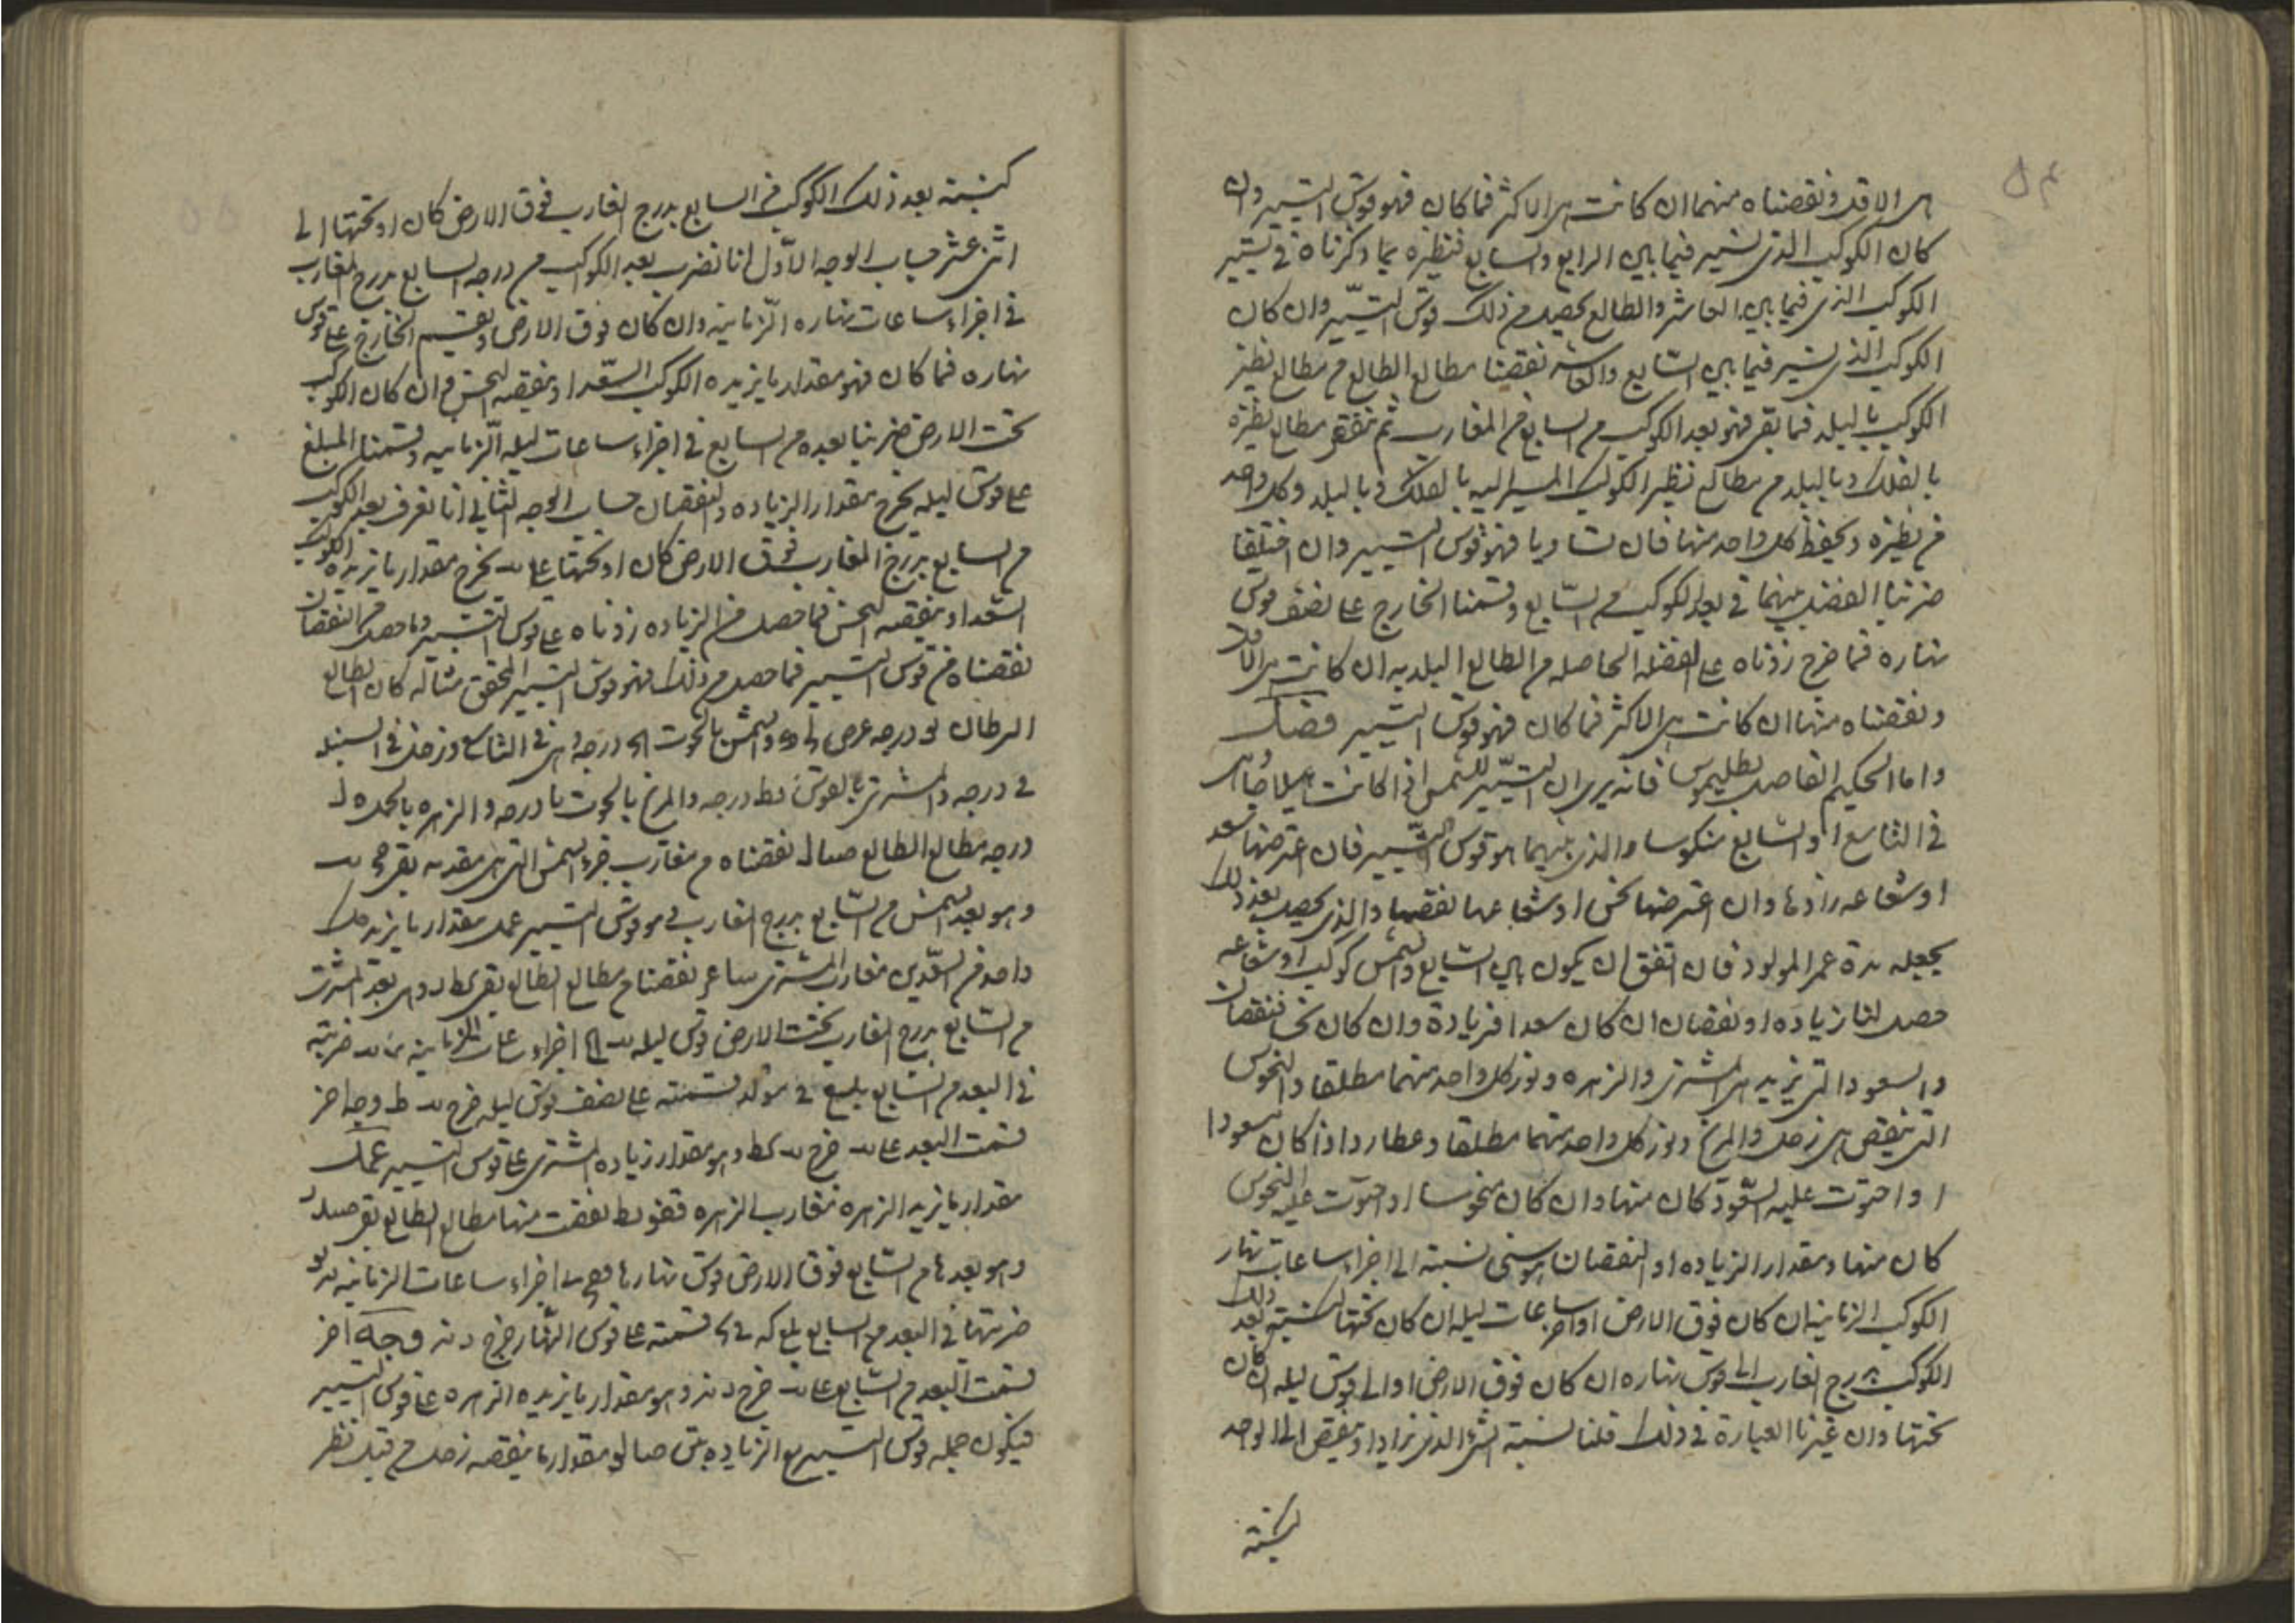 ٥٤
هى الاقل ونقصناه منهما ان كانت هى الاكثر فما كان فهو قوس التسيير وان
كان الكوكب الذى نسير فيما بين الرابع والسابع فنظيره بما ذكرناه فى تسيير
الكوكب الذى فيما بين العاشر والطالع يحصل من ذلك قوس التسيير وان كان
الكوكب الذى نسير فيما بين السابع والعاشر نقصنا مطالع الطالع من مطالع نظير
الكوكب بالبلد فما بقى فهو بعد الكوكب من السابع فى المغارب ثم ننقص مطالع نظيره
بالفلك وبالبلد من مطالع نظير الكوكب المسير اليه بالفلك وبالبلد وكل واحد
من نظيره ونحفظ كل واحد منها فان تساويا فهو قوس التسيير وان اختلفا
ضربنا الفضل بينهما فى بعد الكوكب من السابع وقسمنا الخارج على نصف قوس
نهاره فما خرج زدناه على الفضلة الحاصله من الطالع البلديه ان كانت هى الاقل
ونقصناه منها ان كانت هى الاكثر فما كان فهو قوس التسيير فصل
واما الحكيم الفاضل بطليموس فانه يرى ان التسيير للشمس اذا كانت هيلاجا هى
فى التاسع او السابع منكوسا والذى بينهما هو قوس التسيير فان اعترضها سعد
او شعاعه زادها وان اعترضها نحس او شعاعها نقصها والذى يحصل بعد ذلك
يجعله مدة عمر المولود فان اتفق ان يكون بين السابع والشمس كوكب او شعاعه
حصل لنا زياده او نقصان ان كان سعدا فزيادة وان كان نحسا فنقصان
والسعود التى تزيد هى المشترى والزهره ونور كل واحد منهما مطلقا والنحوس
التى تنقص هى زحل والمريخ ونور كل واحد منهما مطلقا وعطارد اذا كان مسعودا
او احتوت عليه السعود كان منها وان كان منحوسا او احتوت عليه النحوس
كان منها ومقدار الزياده او النقصان هو شى نسبته الى اجزاء ساعات نهار
الكوكب الزمانيه ان كان فوق الارض او اجزاء ساعات ليله ان كان تحتها كنسبة بعد ذلك
الكوكب بدرج المغارب الى قوس نهاره ان كان فوق الارض او الى قوس ليله ان كان
تحتها وان غيرنا العبارة فى ذلك قلنا نسبة الشى الذى يزاد او ينقص الى الواحد
كنسبة
كنسبة بعد ذلك الكوكب من السابع بدرج المغارب فوق الارض كان او تحتها الى
اثنى عشر حساب الوجه الاول انا نضرب بعد الكوكب من درجه السابع بدرج المغارب
فى اجزاء ساعات نهاره الزمانيه وان كان فوق الارض ونقسم الخارج على قوس
نهاره فما كان فهو مقدار ما يزيده الكوكب السعد او ينقصه النحس وان كان الكوكب
تحت الارض ضربنا بعده من السابع فى اجزاء ساعات ليله الزمانيه وقسمنا المبلغ
على قوس ليله يخرج مقدار الزياده والنقصان حساب الوجه الثانى انا نعرف بعد الكوكب
من السابع بدرج المغارب فوق الارض كان او تحتها على يب يخرج مقدار ما يزيده الكوكب
السعد او ينقصه النحس فما حصل من الزياده زدناه على قوس التسيير وما حصل من النقصان
نقصناه من قوس التسيير فما حصل من ذلك فهو قوس التسيير المحقق مثاله كان الطالع
السرطان درجه عرض والشمس بالحوت درجه وهى فى التاسع وزحل فى السنبله
فى درجه والمشترى بالقوس كط درجه والمريخ بالحوت يا درجه والزهره بالحمل
درجه مطالع الطالع نقصناه من مغارب جزء الشمس التى هى مقدمه بقى
وهو بعد الشمس من السابع بدرج المغارب فهو قوس التسيير عمل مقدار ما يزيد كل
واحد من السعدين مغارب المشترى نقصنا من مطالع الطالع بقى وهى بعد المشترى
من السابع بدرج المغارب تحت الارض قوس ليله اجزاء ساعاته الزمانيه ضربته
فى البعد من السابع بلغ قسمته على نصف قوس ليله خرج وجه اخر
قسمت البعد على يب خرج وهو مقدار زياده المشترى على قوس التسيير عمل
مقدار ما يزيد الزهره مغارب الزهره نقصت منها مطالع الطالع بقى
وهو بعدها من السابع فوق الارض قوس نهارها اجزاء ساعات الزمانيه
ضربتها فى البعد من السابع بلغ قسمته على قوس النهار خرج وجه اخر
قسمت البعد من السابع على يب خرج وهو مقدار ما يزيده الزهره على قوس التسيير
فيكون جمله قوس التسيير مع الزياده مقدار ما ينقصه زحل من قبل نظر